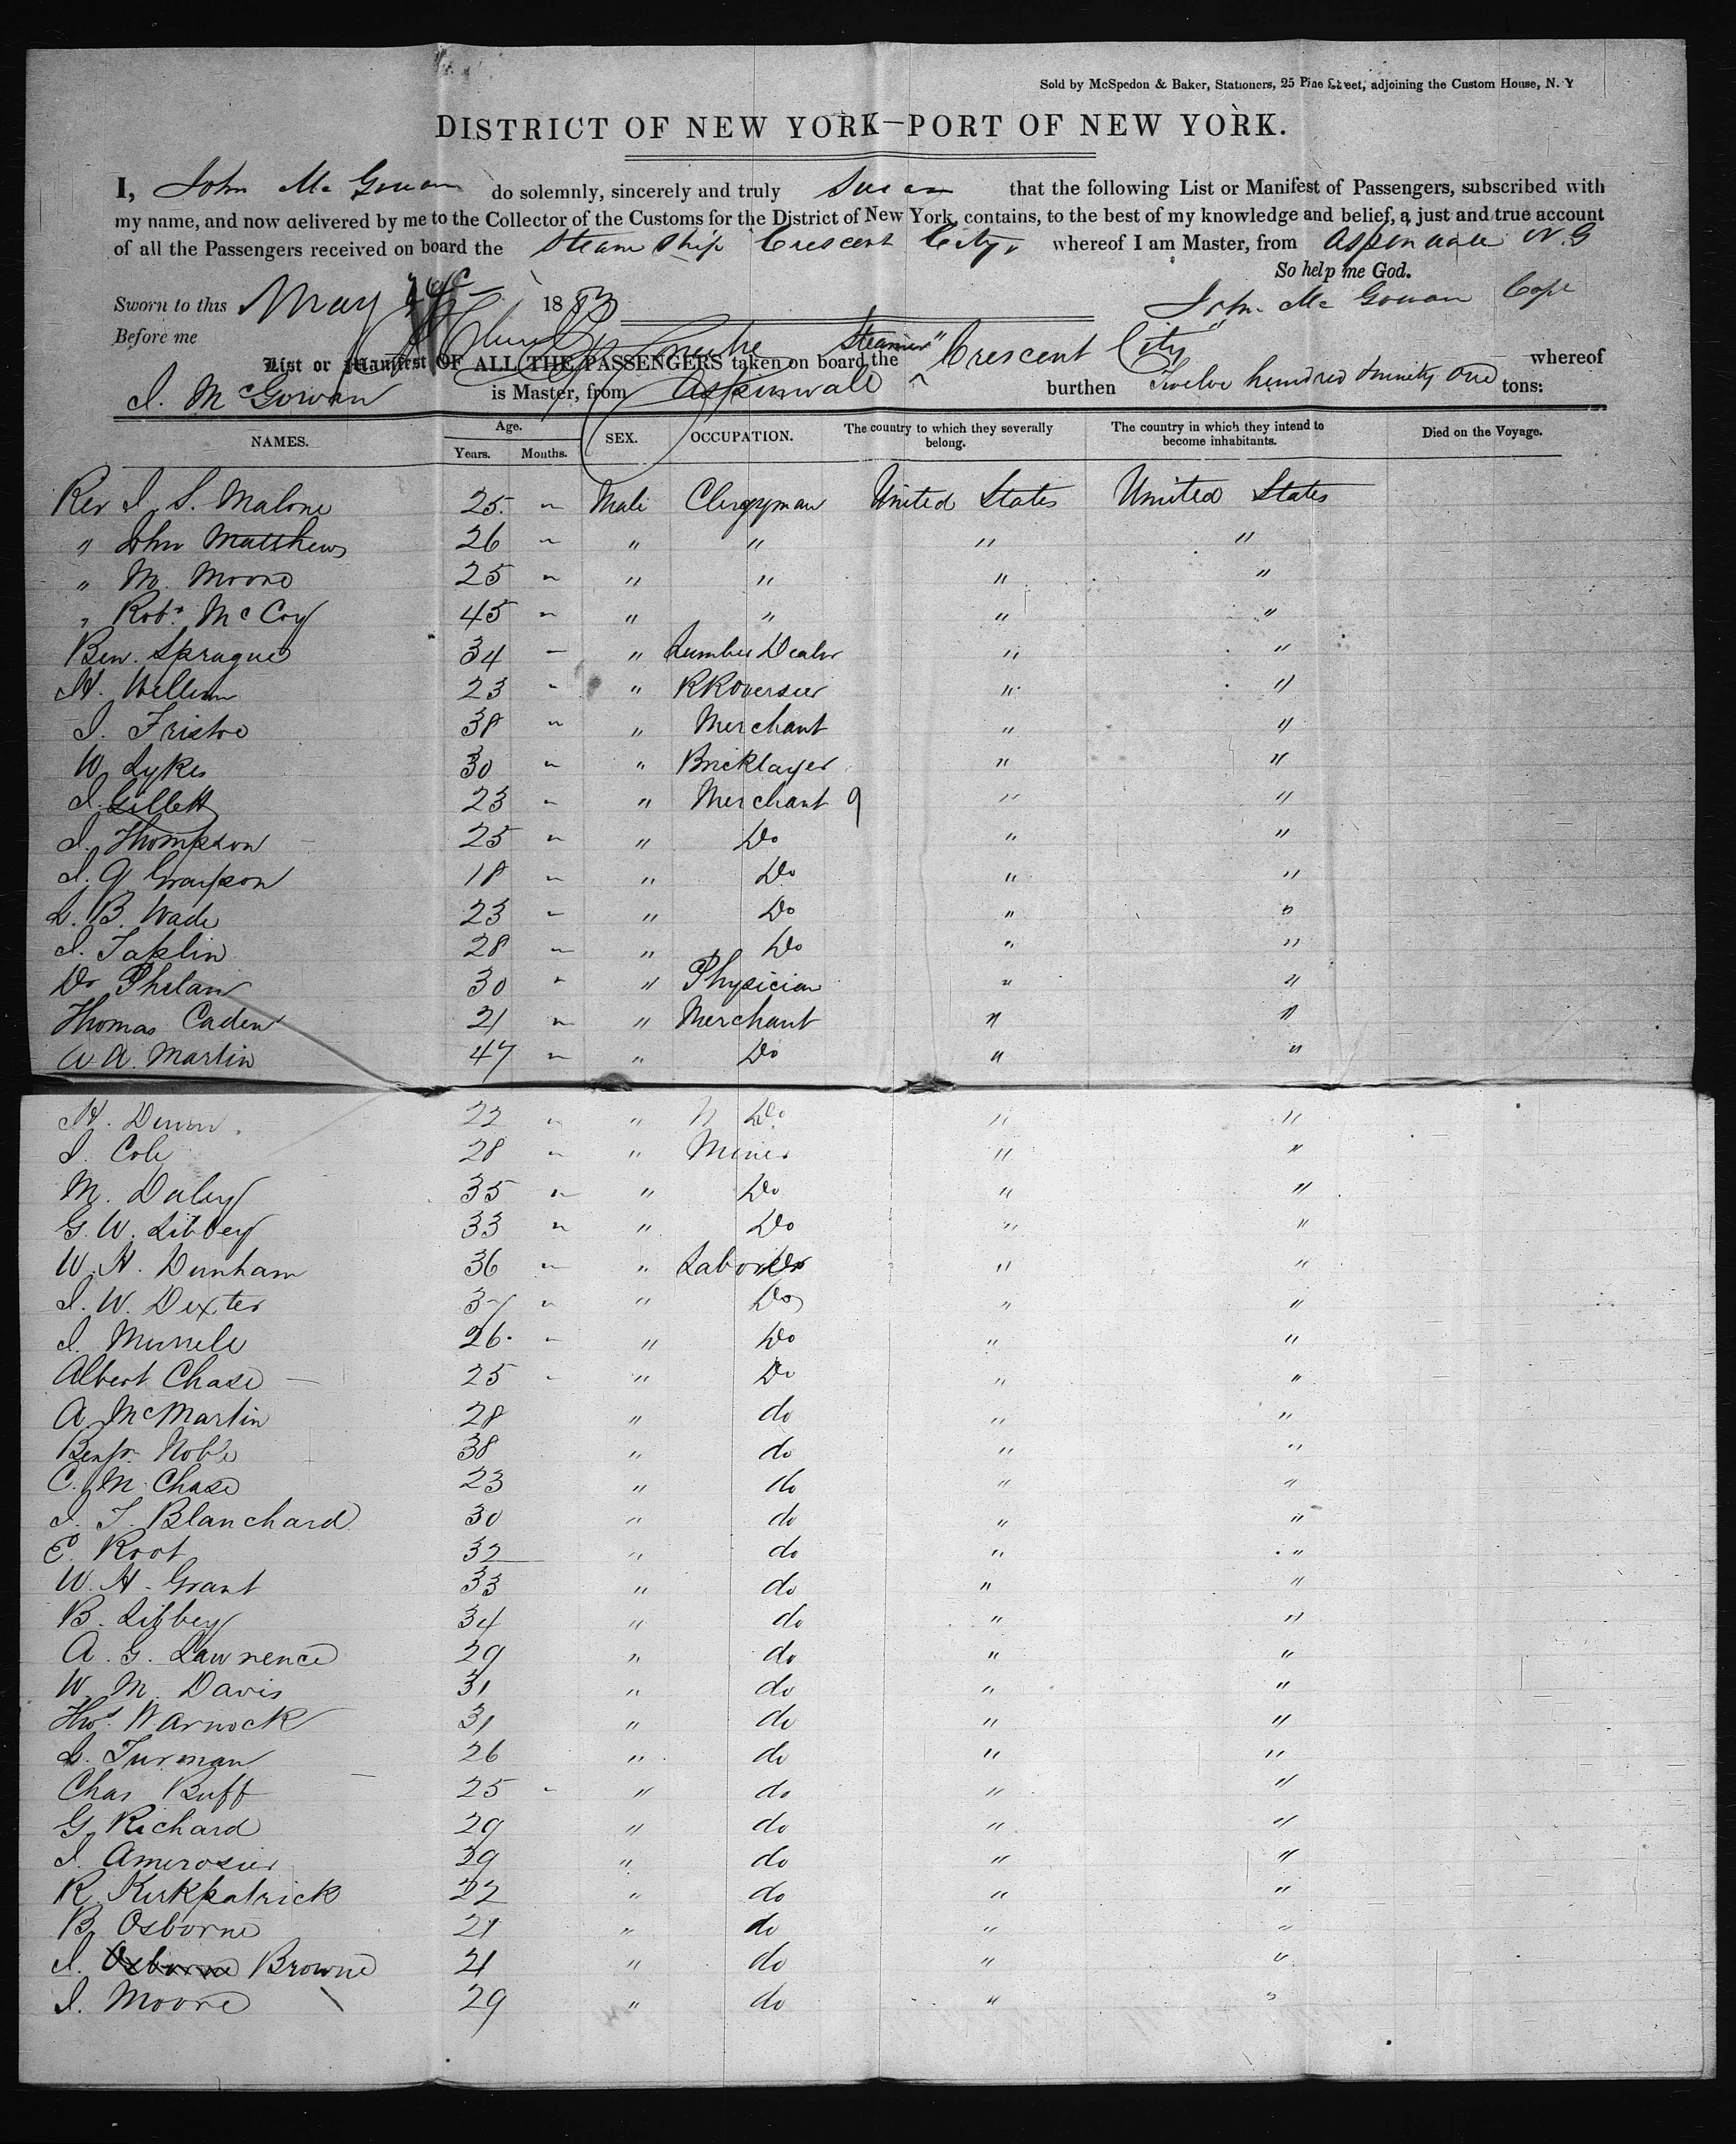 Sold by McSpedon & Baker, Stationers, 25 Pine Street, adjoining the Custom House, N. Y
DISTRICT OF NEW YORK—PORT OF NEW YORK.
I, John McGowan do solemnly, sincerely and truly Swear that the following List or Manifest of Passengers, subscribed with
my name, and now delivered by me to the Collector of the Customs for the District of New York, contains, to the best of my knowledge and belief, a just and true account
of all the Passengers received on board the Steam Ship Crescent City, whereof I am Master, from Aspinwall N. G
So help me God.
Sworn to this May 1853
John McGowan Capt
Before me
List or Manifest OF ALL THE PASSENGERS taken on board the Steamer "Crescent City" whereof
J. McGowan is Master, from Aspinwall burthen Twelve hundred Ninety One tons:
NAMES. Age. Years. Months. SEX. OCCUPATION. The country to which they severally belong. The country in which they intend to become inhabitants. Died on the Voyage.
Rev J. S. Malone 25 " Male Clergyman United States United States
" John Matthews 26 " " " " "
" M. Moore 25 " " " " "
" Robt. McCoy 45 " " " " "
Ben. Sprague 34 " " Lumber Dealer " "
H. Willem 23 " " RR Oversier " "
J. Fristoe 38 " " Merchant " "
W. Lykes 30 " " Bricklayer " "
J. Gillett 23 " " Merchant 9 " "
J. Thompson 25 " " Do " "
J. G. Grayson 18 " " Do " "
L. B. Wade 23 " " Do " "
J. Taplin 28 " " Do " "
Dr Phelan 30 " " Physician " "
Thomas Caden 21 " " Merchant " "
A A. Martin 47 " " Do " "
H. 22 " " Do " "
J. Cole 28 " " Miner " "
M. Daley 35 " " Do " "
G. W. Libbey 33 " " Do " "
W. H. Dunham 36 " " Laborer " "
J. W. Dexter 37 " " Do " "
J. Murrele 26 " " Do " "
Albert Chase 25 " " Do " "
A. McMartin 28 " do " "
Benjn. Noble 38 " do " "
C. M. Chase 23 " do " "
J. T. Blanchard 30 " do " "
E. Root 32 " do " "
W. H. Grant 33 " do " "
B. Libbey 34 " do " "
A. G. Lawrence 29 " do " "
W. M. Davis 31 " do " "
Thos. Warnock 31 " do " "
L. Turman 26 " do " "
Chas Ruff 25 " " do " "
G. Richard 29 " do " "
J. Amerosier 39 " do " "
R. Kirkpatrick 22 " do " "
B. Osborne 21 " do " "
J. Osborne Browne 21 " do " "
J. Moore 29 " do " "